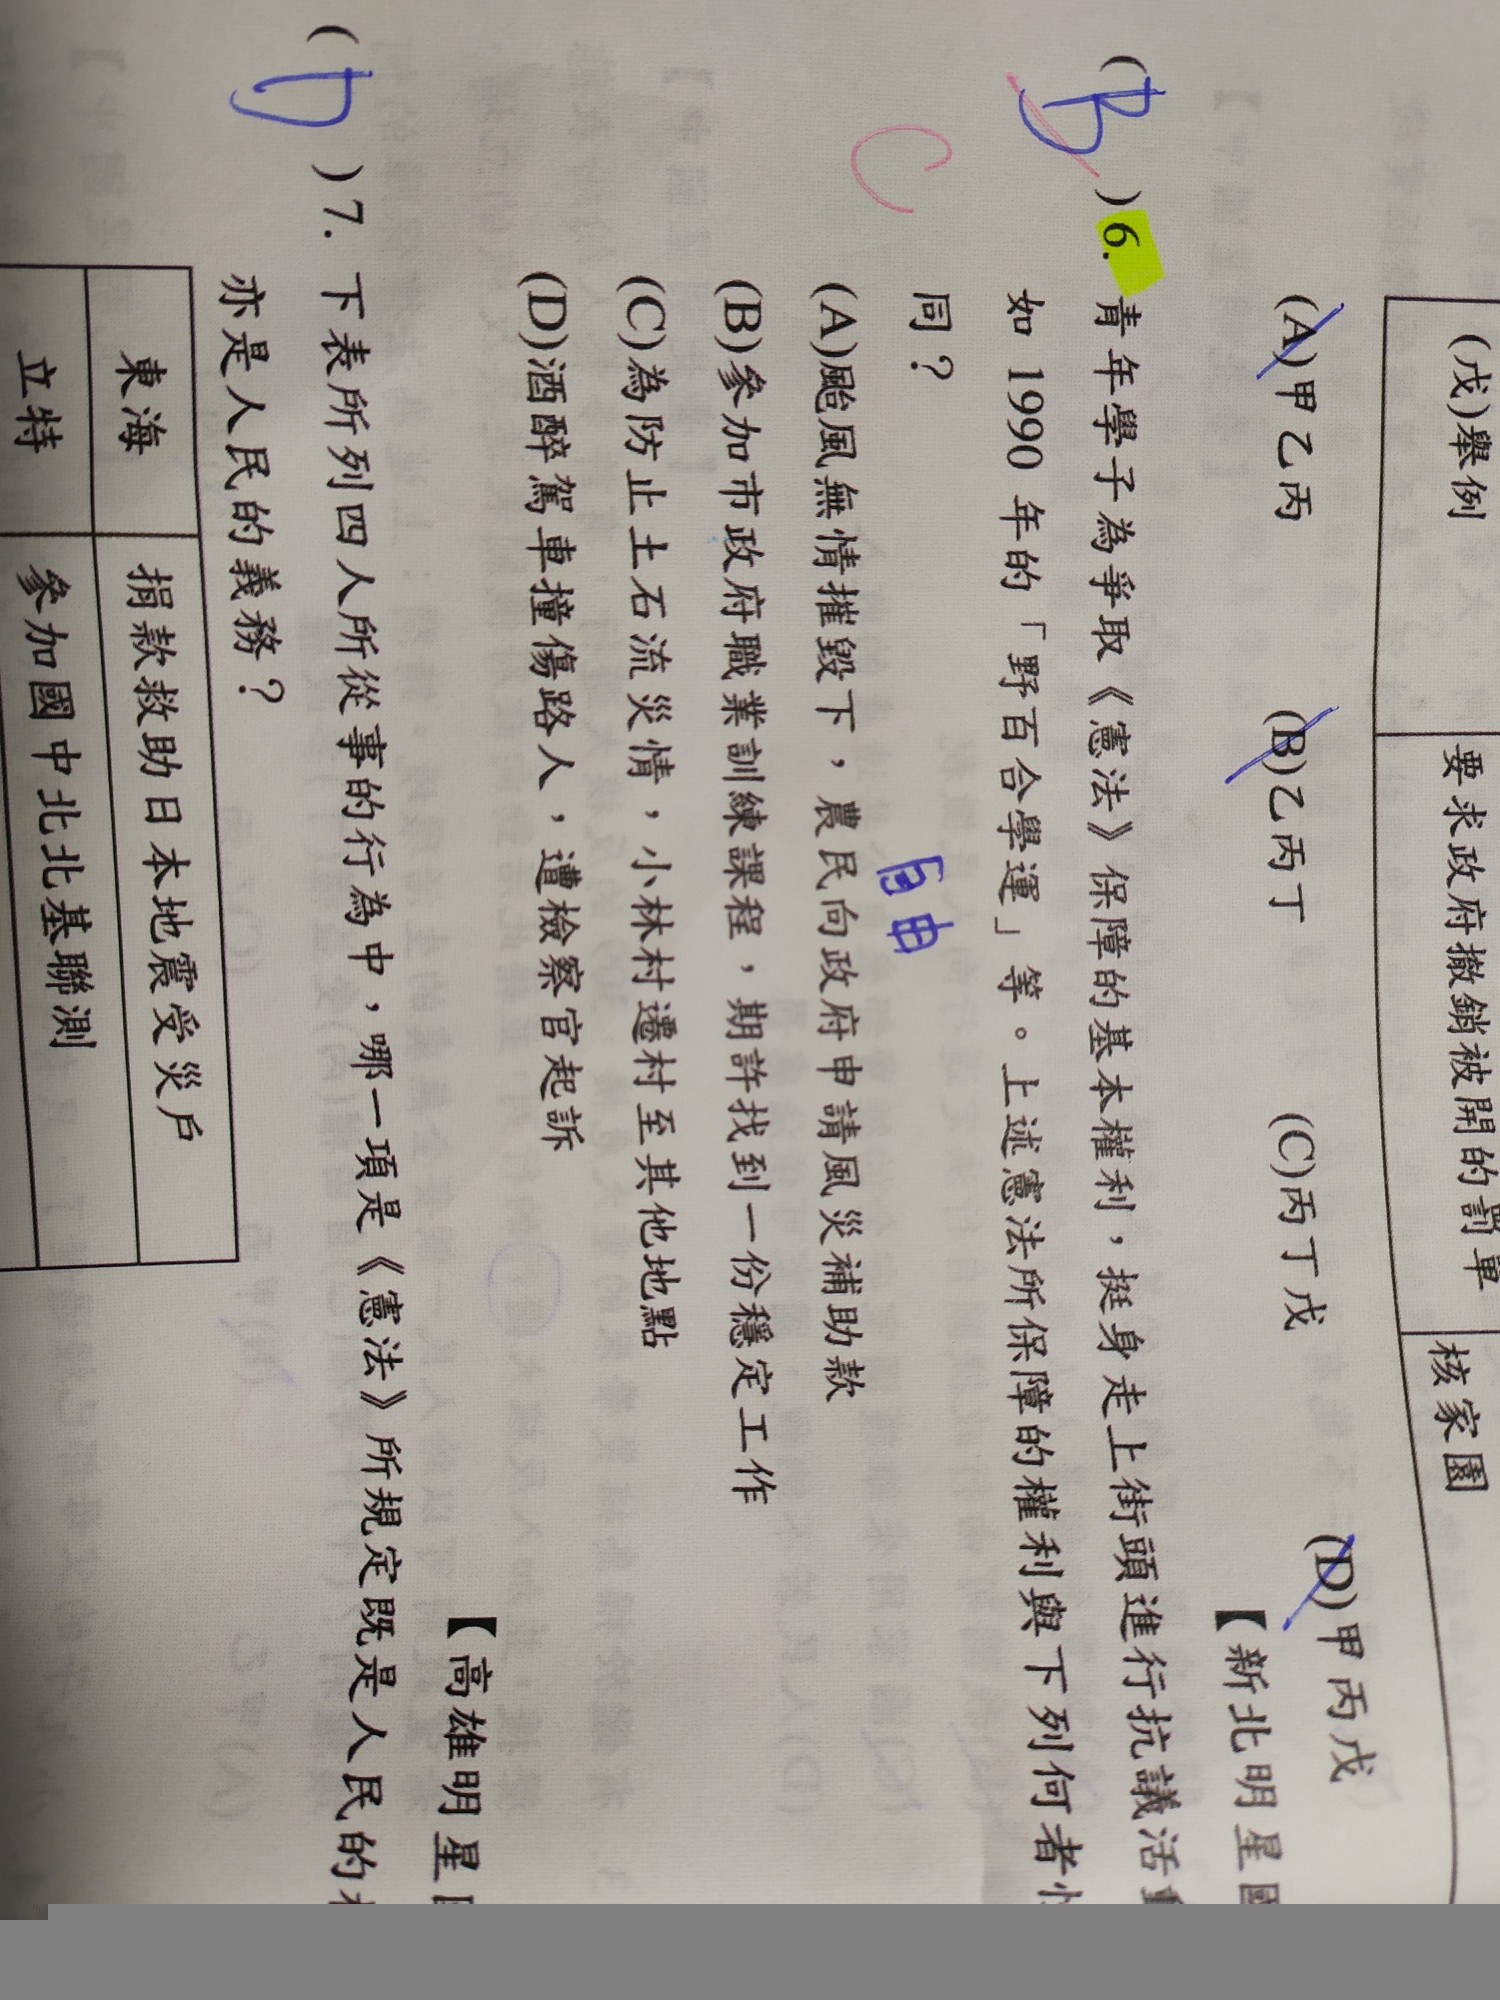 (戊)舉例 要求政府撤銷被開的罰單 核家園
(A)甲乙丙 (B)乙丙丁 (C)丙丁戊 (D)甲丙戊
【新北明星國
(B)6. 青年學子為爭取《憲法》保障的基本權利，挺身走上街頭進行抗議活
如 1990 年的「野百合學運」等。上述憲法所保障的權利與下列何者
同？
自由
C
(A)颱風無情摧毀下，農民向政府申請風災補助款
(B)參加市政府職業訓練課程，期許找到一份穩定工作
(C)為防止土石流災情，小林村遷村至其他地點
(D)酒醉駕車撞傷路人，遭檢察官起訴
【高雄明星
(D)7. 下表所列四人所從事的行為中，哪一項是《憲法》所規定既是人民的
亦是人民的義務？
東海 捐款救助日本地震受災戶
立特 參加國中北北基聯測